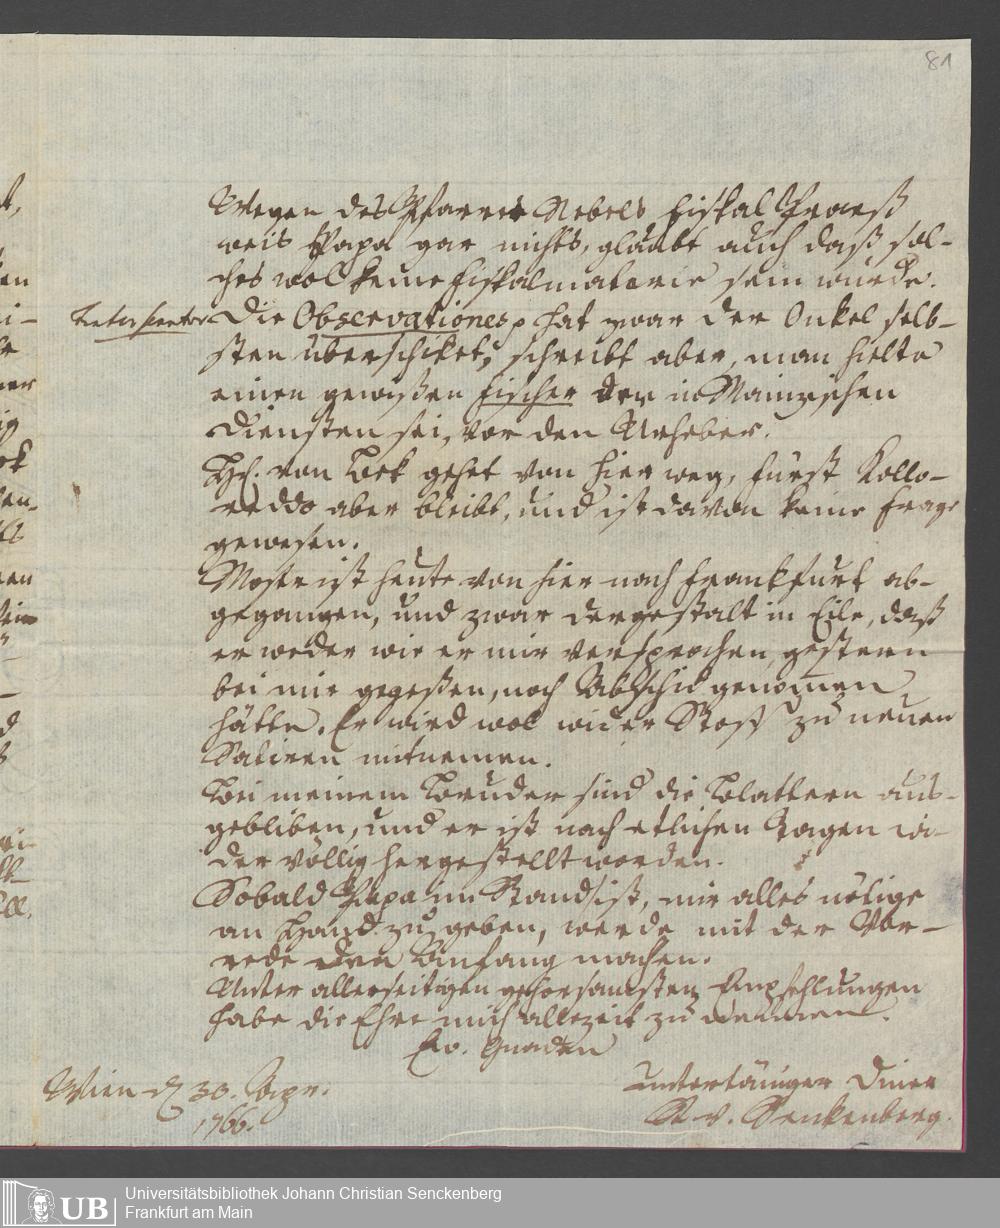 81
Wegen des Pfarrer Nebels Fiskal Prozeß
weis Papa gar nichts, glaubt auch daß sol-
ches wol keine Fiskalmaterie sein würde.
Die Observationes p hat zwar der Onkel selb-
sten überschiket, schreibt aber, man hielte
einen gewißen Fischer der in Mainzischen
Diensten sei, vor den Urheber.
H. von Bek gehet von hier weg, Fürst Kollo-
reddo aber bleibt, und ist davon keine Frage
gewesen.
Moser ist heute von hier nach Frankfurt ab-
gegangen, und zwar dergestalt in Eile, daß
er weder wie er mir versprochen, gestern
bei mir gegeßen, noch Abschid genomen
hätte. Er wird wol wider Stoff zu neuen
Satiren mitnemen.
Bei meinem Bruder sind die Blattern aus-
gebliben, und er ist nach etlichen Tagen wi-
der völlig hergestellt worden.
Sobald Papa im Stand ist, mir alles nötige
an Hand zu geben, werde mit der Vor-
rede den Anfang machen.
Unter allerseitigen gehorsamsten Empfehlungen
habe die Ehre mich allezeit zu nennen
Ew. Gnaden
Wien d 30. Apr.
1766.
untertäniger Diner
R. v. Senkenberg.
UB
Universitätsbibliothek Johann Christian Senckenberg
Frankfurt am Main